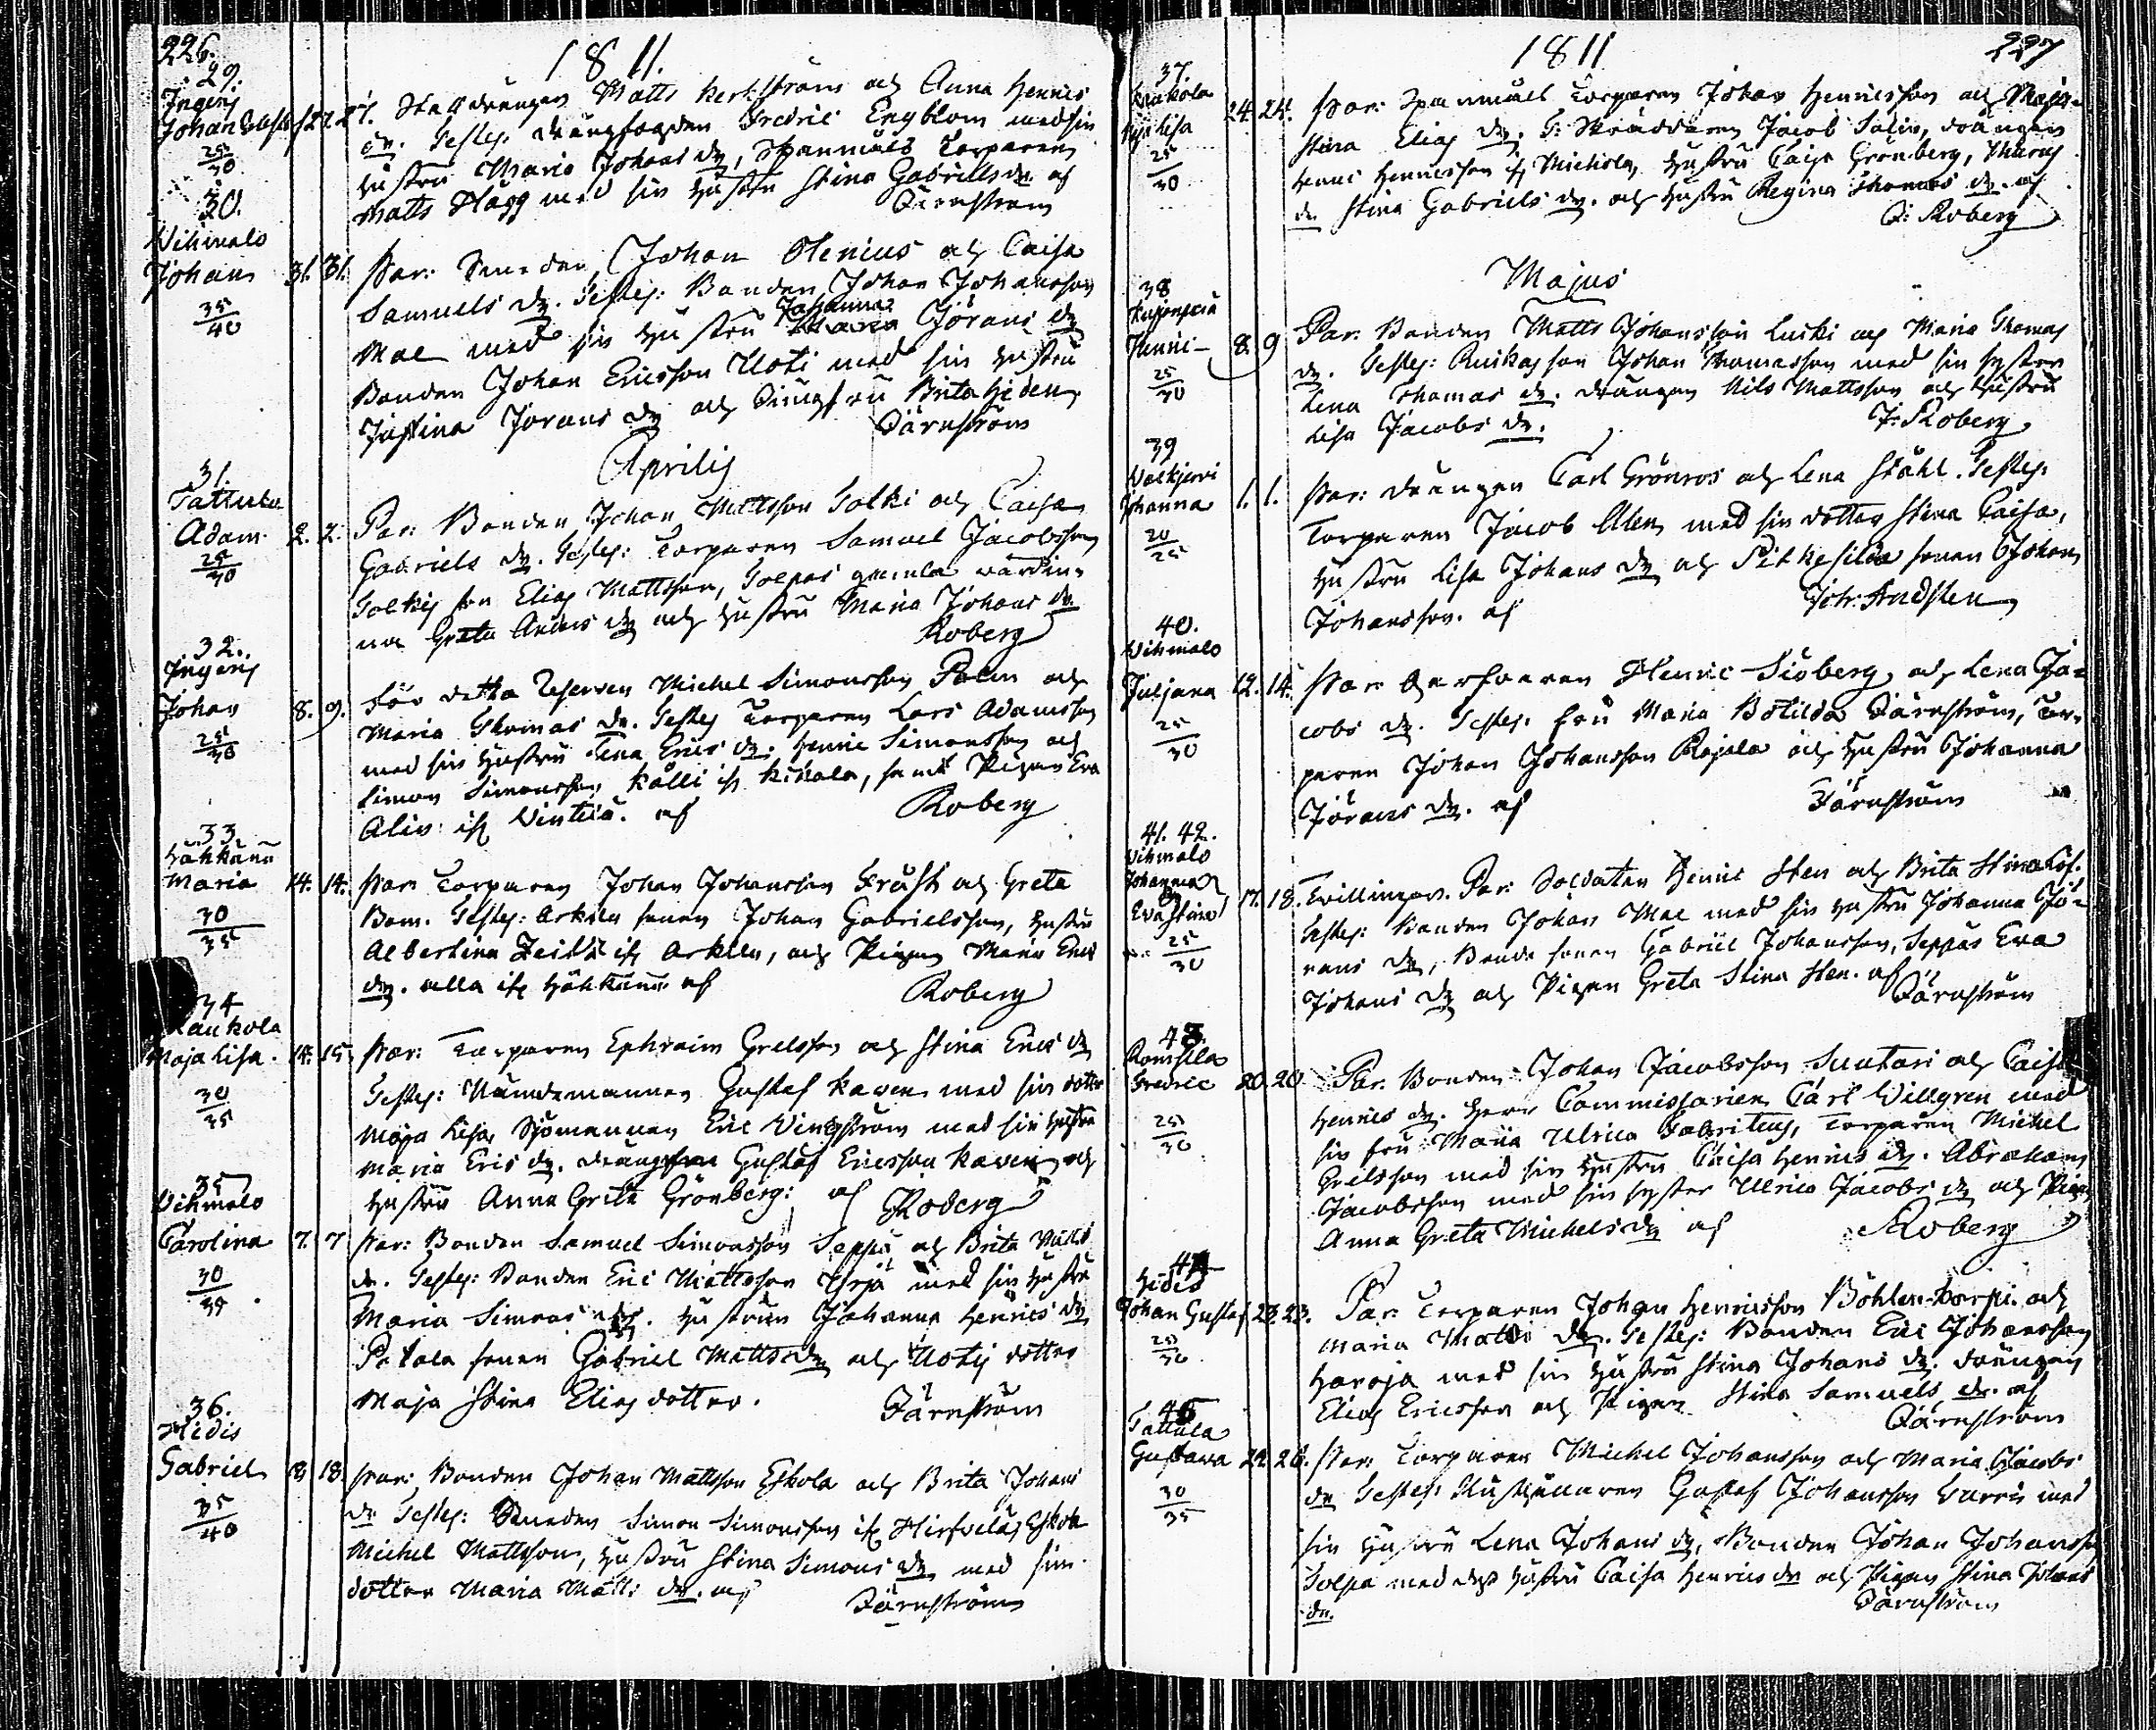 226.
1811.
29.
Ingeris
Johan Gustaf 27. 27. Stalldrängen Matts Kerkström och Anna Henrics
25
30
dr. Testes. Drängfogden Fredric Engblom med sin
hustru Maria Johans dr, Spanmåls Torparen
Matts Hägg med sin hustru Stina Gabriels dr af
Färnström
30.
Vihmalo
Johan 31. 31. Par: Smeden Johan Olenius och Caisa
35
40
Samuels dr. Testes: Bonden Johan Johansson
Mae med sin hustru Johanna Jörans dr
Bonden Johan Ericsson Uoti med sin hustru
Justina Jörans dr och Jungfru Brita Heden
Färnström
Aprilis
31.
Tattula
Adam 2. 2. Par: Bonden Johan Mattsson Solki och Caisa
25
30
Gabriels dr. Testes: Torparen Samuel Jacobsson
Solkis son Elias Mattsson, Solpas gamla värdin-
na Greta Anders dr och hustru Maria Johans dr
Roberg
32.
Ingeris
Johan 8. 9. För detta Reserven Michel Simonsson Palm och
25
30
Maria Thomas dr. Testes Torparen Lars Adamsson
med sin hustru Lena Erics dr. Henric Simonsson och
Simon Simonsson Källi if Kukola, samt Pigan Eva
Alin if Vintiä. af Roberg
33
Häkkänä
Maria 14. 14. Par: Torparen Johan Johansson Fräsk och Greta
30
35
Bom. Testes: Arkila sonen Johan Gabrielsson, hustru
Albertina if Arkila, och Pigan Maria Erics
dr. alla if Häkkänä af Roberg
34
Kaukola
Maja Lisa. 14. 15. Par: Torparen Ephraim Grelsson och Stina Erics dr
30
35
Testes: Nämdemannen Gustaf Kaven med sin dotter
Maja Lisa, Sjömannen Eric Vingström med sin hustru
Maria Erics dr. Gustaf Ericsson Kaven och
hustru Anna Greta Grönberg: af Roberg
35
Vihmalo
Carolina 7. 7 Par: Bonden Samuel Simonsson Seppä och Brita Matts
30
35
dr. Testes: Bonden Eric Mattsson Yrjä med sin hustru
Maria Simons dr. hustrun Johanna Henrics dr
Petola sonen Gabriel Matts och Uotis dotter
Maja Stina Elias dotter. Färnström
36.
Hidis
Gabriel 18. 18. Par: Bonden Johan Mattsson Eskola och Brita Johans
35
40
dr Testes: Bonden Simon Simonsson if Hirfvelä, Eskola
Michel Mattsson, hustru Stina Simons dr med sin
dotter Maria Matts dr. af Färnström
1811
227
37.
Kaukola
Maja Lisa 24 24. Par: Spanmåls Torparen Johan Henricsson och Maja
25
30
Stina Elias dr. T: Skräddaren Jacob Salin, drängen
Henric Henricsson if Michola, hustru Caisa Grönberg,
dr Stina Gabriels dr. och hustru Regina Thomas dr. af
J: Roberg
Majus
38
Henric 8. 9 Par. Bonden Matts Johansson Luski och Maria Thomas
25
30
dr. Testes: Johan Thomasson med sin syster
Lena Thomas dr. drängen Nils Mattsson och hustru
Lisa Jacobs dr. J: Roberg
39
Valkjervi
Johanna 1. 1. Par: drängen Carl Grönros och Lena Ståhl. Testes:
20
25
Torparen Jacob Alen med sin dotter Stina Caisa,
hustru Lisa Johans dr och Pitkesilda sonen Johan
Johansson. af Joh: Andsten
40.
Vihmalo
Juljana 12. 14. Par: Henric Siöberg och Lena Ja-
25
30
cobs dr. Testes. fru Maria Botilda Färnström, Tor-
paren Johan Johansson Rajala och hustru Johanna
Jörans dr. af Färnström
41. 42.
Vihmalo
Johanna och
Eva Stina 17. 18. Tvillingar. Par: Soldaten Henric Sten och Brita Stina Löf.
25
30
Testes: Bonden Johan Mae med sin hustru Johanna Jö-
rans dr, Bonde sonen Gabriel Johansson, Seppäs Eva
Johans dr och Pigan Greta Stina Sten. af
Färnström
43.
Romsila
Fredric 20. 20. Par. Bonden Johan Jacobsson Suutari och Caisa
25
30
Henrics dr. Herr Commissarien Carl Willgren med
sin fru Maria Ulrica Fabritius, Torparen Michel
Grelsson med sin hustru Caisa Henrics dr. Abraham
Jacobsson med sin syster Ulrica Jacobs dr och Pigan
Anna Greta Michels dr af Roberg
44
Hidis
Johan Gustaf 23. 23. Par: Torparen Johan Henricsson Böhlen-torpi. och
25
30
Maria Matts dr. Testes: Bonden Eric Johansson
Haroja med sin hustru Stina Johans dr. drängen
Elias Ericsson och Pigan Stina Samuels dr. af
Färnström
45
Tattula
Gustava 24. 26. Par: Torparen Michel Johansson och Maria Jacobs
30
35
dr Testes: Gustaf Johansson Varris med
sin hustru Lena Johans dr, Bonden Johan Johansson
Solpa med dess hustru Caisa Henrics dr och Pigan Stina Johans
dr. Färnström